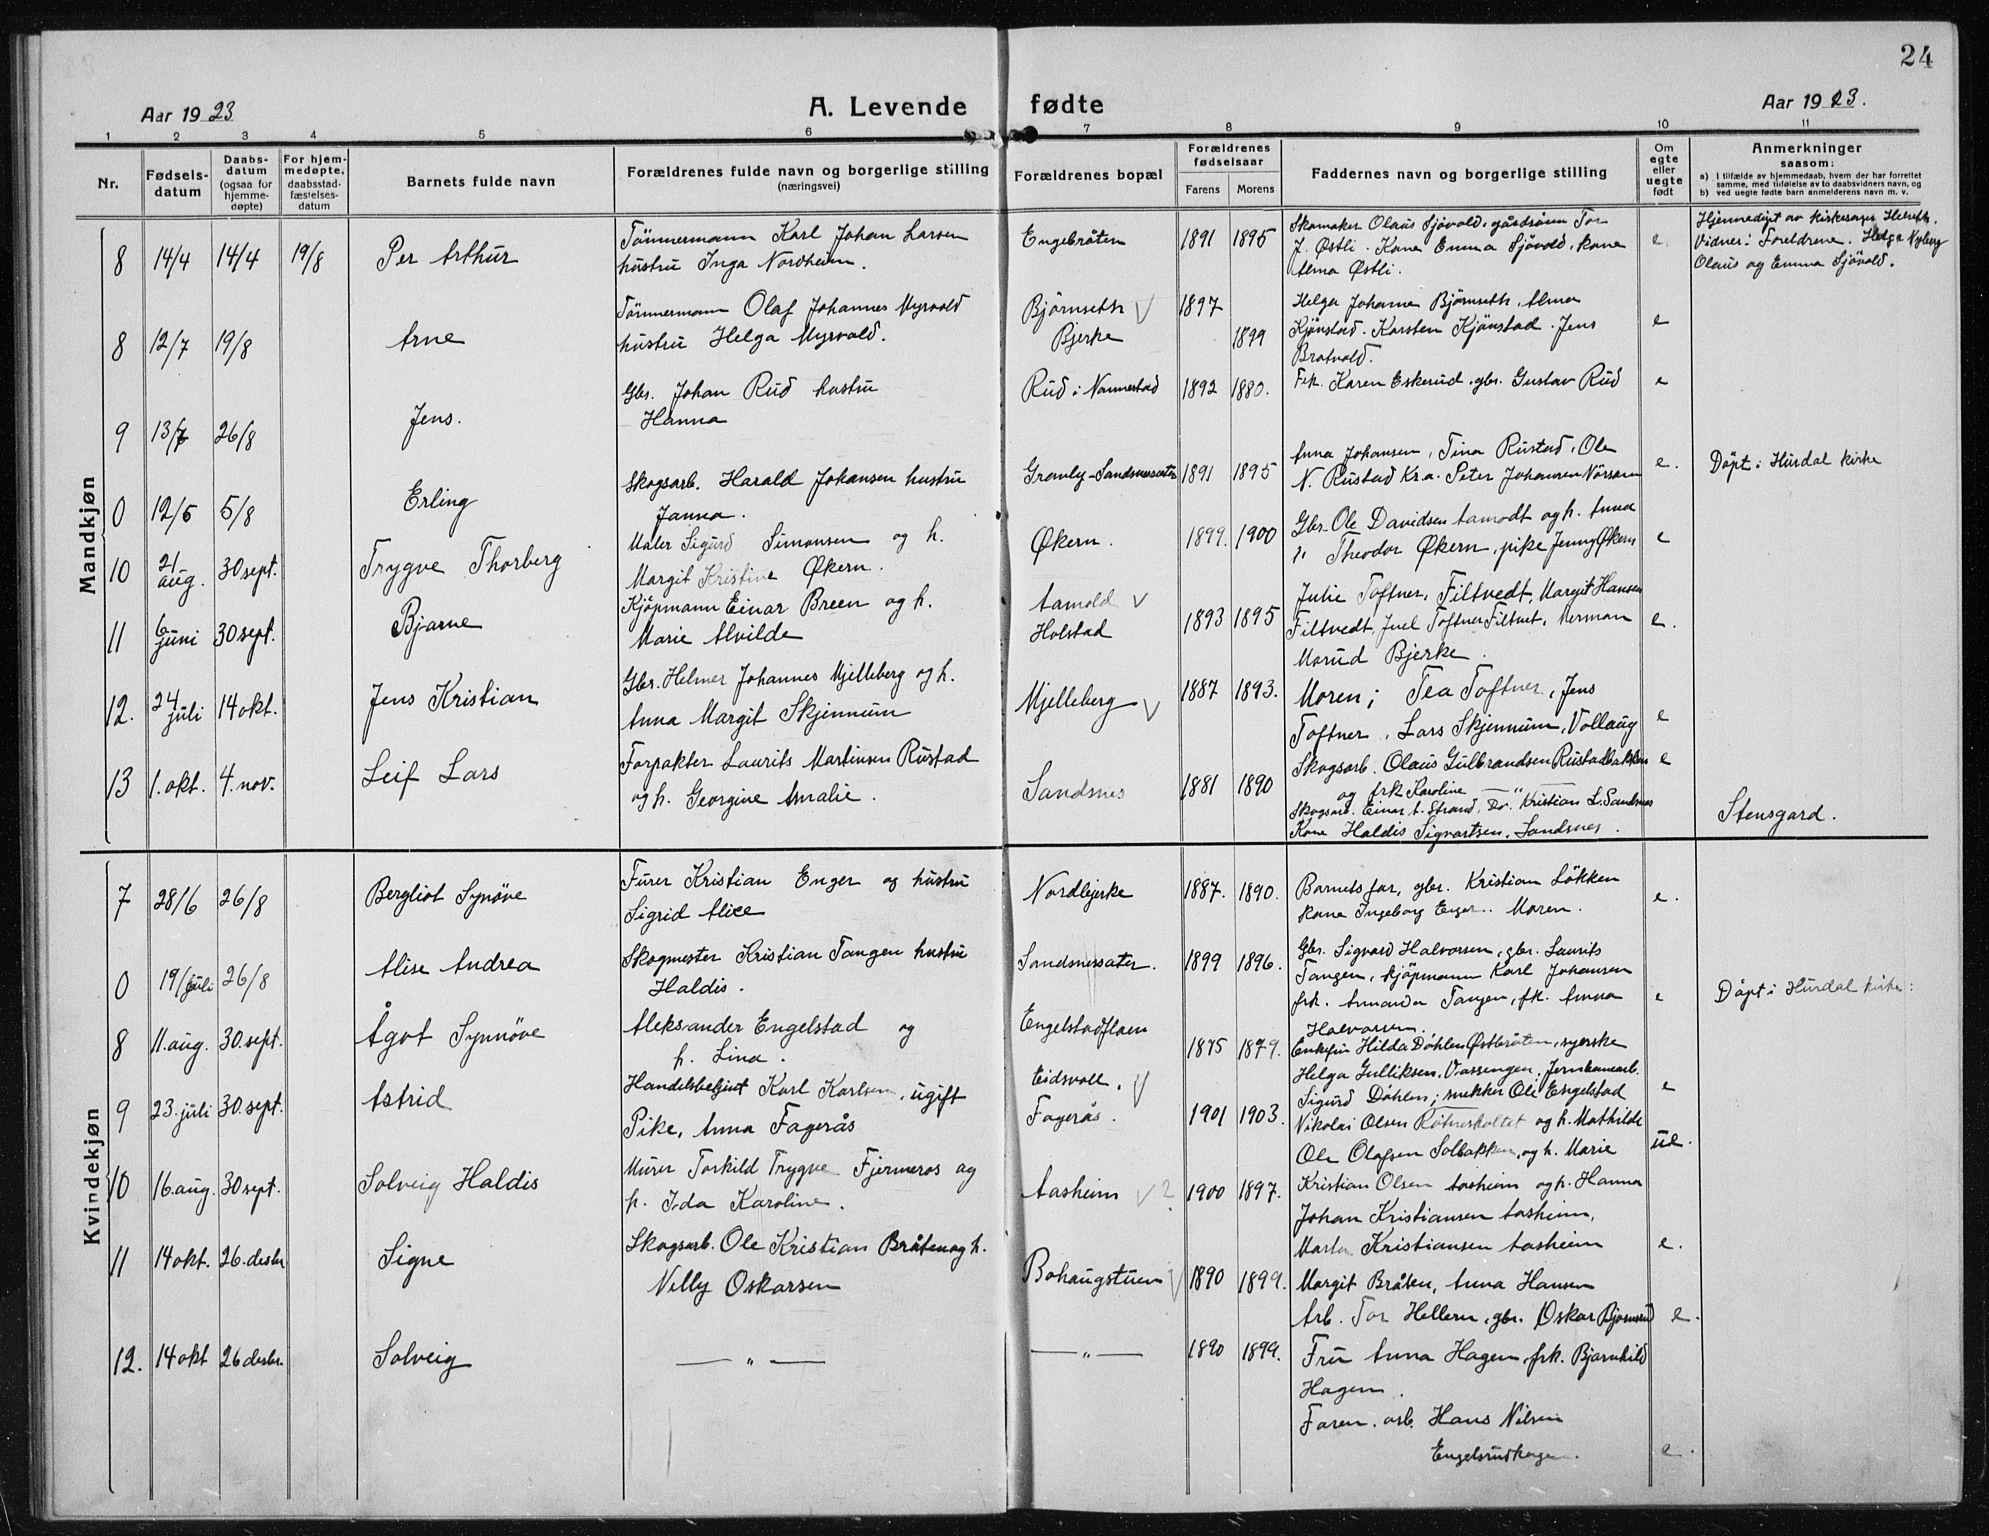 24
Aar 1923
A. Levende fødte
Aar 1923.
1 2 3 4 5 6 7 8 9 10 11
Nr.
Fødsels-
datum
Daabs-
datum
(ogsaa for
hjemme-
døpte)
For hjem-
medøpte,
daabsstad-
fæstelses-
datum
Barnets fulde navn
Forældrenes fulde navn og borgerlige stilling
(næringsvei)
Forældrenes bopæl
Forældrenes
fødselsaar
Farens Morens
Faddernes navn og borgerlige stilling
Om
egte
eller
uegte
født
Anmerkninger
saasom:
a) I tilfælde av hjemmedaab, hvem der har forrettet
samme, med tilføielse av to daabsvidners navn, og
b) ved uegte fødte barn anmelderens navn m. v.
Mandkjøn
8 14/4 14/4 19/8 Per Arthur
Tømmermann Karl Johan Larsen
hustru Inga Nordheim.
Engebråten 1891 1895
Skomaker Olaus Sjövold, gårdsråen Tor
J. Østli. Kone Emma Sjövold, kone
Alma Østli.
e.
Hjemmedöpt av kirkesanger
Vidner: Foreldrene. Helga Nyberg
Olaus og Emma Sjövold.
8 12/7 19/8 Arne
Tömmermann Olaf Johannes Myrvold
hustru Helga Myrvold.
Björnseth
Bjerke
1897 1899
Helga Johanne Björnseth, Alma
Kjönstad. Karsten Kjönstad. Jens
Bratvold.
e
9 13/7 26/8 Jens.
Gbr. Johan Rud hustru
Hanna
Rud i Nannestad 1892 1880.
Frk. Karen Eskerud, gbr. Gustav Rud
e
0 12/5 5/8 Erling
Skogsarb. Harald Johansen hustru
Janna.
Granly-Sandsnessæter 1891 1895
Anna Johansen, Tina Rustad, Ole
N. Rustad Kr.a. Peter Johansen
e.
Döpt i Hurdal kirke
10 21 aug. 30 sept. Trygve Thorberg
Maler Sigurd Simonsen og h.
Margit Kristine Økern.
Økern. 1899. 1900
Gbr. Ole Davidsen Aamodt og h. Anna
" Theodor Økern, pike Jenny Økern
e
11 6 juni 30 sept. Bjarne
Kjöpmann Einar Breen og h.
Marie Alvilde
Aamold
Holstad
1893 1895
Julie Toftner, Filtvedt, Margit Hansen
Filtvedt, Juel Toftner Filtvet, Herman
Morud Bjerke.
e.
12. 24 juli 14 okt. Jens Kristian
Gbr. Helmer Johannes Mjelleberg og h.
Anna Margit Skjennum
Mjelleberg 1887 1893.
Moren; Tea Toftner, Jens
Toftner, Lars Skjennum, Vollaug
e
13 1. okt. 4. nov. Leif Lars
Forpakter Laurits Martinsen Rustad
og h. Georgine Amalie.
Sandsnes 1881 1890
Skogsarb. Olaus Gulbrandsen Rustadbakken
og frk Karoline — " —
Skogsarb. Einar A. Strand. Do. Kristian L. Sandsnes
Kone Haldis Sigvartsen, Sandsnes.
e
Stensgard.
Kvindekjøn
7 28/6 26/8 Bergliot Synöve
Furer Kristian Enger og hustru
Sigrid Alice
Nordbjerke 1887. 1890.
Barnets far, gbr. Kristian Lökken
kone Ingeborg Enger. Moren.
e.
0 19/juli 26/8 Alise Andrea
Skogmester Kristian Tangen hustru
Haldis.
Sandsnessæter. 1899 1896.
Gbr. Sigvard Halvorsen, gbr. Laurits
Tangen, kjöpmann Karl Johansen
frk. Amanda Tangen, frk. Anna
Halvorsen.
e
Döpt i Hurdal kirke:
8 11. aug. 30. sept. Ågot Synnöve
Aleksander Engelstad og
h. Lina.
Engelstadfloen 1875 1879.
Enkefru Hilda Döhlen Østbråten, syerske
Helga Gulliksen, Vassengen, Jernbanearb.
Sigurd Döhlen; snekker Ole Engelstad
e
9 23. juli 30. sept. Astrid
Handelsbetjent Karl Karlsen, ugift
Pike, Anna Fagerås
Eidsvoll.
Fagerås.
1901 1903.
Nikolai Olsen Råtneholtet og h. Mathilde
Ole Olafsen Solbakken, og h. Marie
ue.
10 16. aug. 30 sept. Solveig Haldis
Murer Torkild Trygve Fjermeros og
h. Ida Karoline.
Aasheim ? 1900 1897.
Kristian Olsen Aasheim og h. Hanna
Johan Kristiansen Aasheim,
Marta Kristiansen Aasheim
e.
11 14 okt. 26. desbr Signe
Skogsarb. Ole Kristian Bråten og h.
Nelly Oskarsen
Bohaugstuen 1890 1899.
Margit Bråten, Anna Hansen
Arb. Tor Hellern, gbr. Oskar Bjørnsrud
e.
12. 14 okt 26 desbr. Solveig
— " —
— " — 1890 1899.
Fru Anna Hagen, frk. Bjarnhild
Hagen.
Faren. arb. Hans Nilsen
Engelsrudhagen.
e.